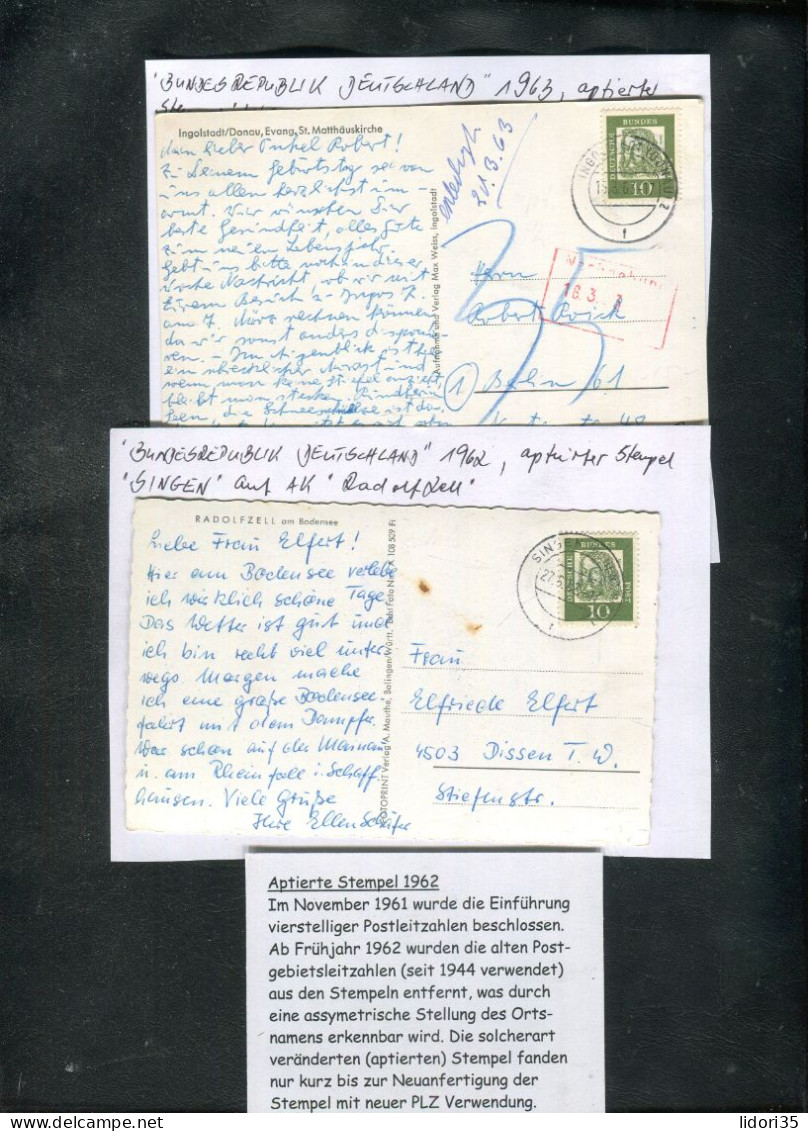 "BUNDESREPUBLIK DEUTSCHLAND" 1963, aptierter
Ingolstadt/Donau, Evang. St. Matthäuskirche
Mein lieber Onkel Robert!
Zu Deinem Geburtstag sei von
uns allen herzlichst um-
armt. Wir wünschen Dir
beste Gesundheit, alles Gute
zum neuen Lebensjahr.
Gebt uns bitte noch in dieser
Woche Nachricht, ob wir mit
Eurem Besuch
am 7. März rechnen können
da wir sonst anders disponie-
ren. - Im Augenblick ist hier
ein schrecklicher
wenn man keine Stiefel anzieht,
bleibt man stecken.
die Schneeschmelze ist da.
21.3.63
Aufnahme und Verlag Max Weiss, Ingolstadt
DEUTSCHE BUNDES
10
INGOLSTADT
f
35
18.3.
Herrn
Robert
(1) Berlin 61
"BUNDESREPUBLIK DEUTSCHLAND" 1962, aptierter Stempel
"SINGEN" auf AK "Radolfzell"
RADOLFZELL am Bodensee
Liebe Frau Elfert!
Hier am Bodensee verlebe
ich wirklich schöne Tage
Das Wetter ist gut und
ich bin recht viel unter
wegs. Morgen mache
ich eine große Bodensee
fahrt mit dem Dampfer.
War schon auf der Mainau
u. am Rheinfall i. Schaff
hausen. Viele Grüße
Ihre Ellen Schäfer
FOTOPRINT Verlag A. Mauthe, Balingen/Württ.
SINGEN
DEUTSCHE BUNDES POST
10
Frau
Elfriede Elfert
4503 Dissen T. W.
Stiefenstr.
Aptierte Stempel 1962
Im November 1961 wurde die Einführung
vierstelliger Postleitzahlen beschlossen.
Ab Frühjahr 1962 wurden die alten Post-
gebietsleitzahlen (seit 1944 verwendet)
aus den Stempeln entfernt, was durch
eine assymetrische Stellung des Orts-
namens erkennbar wird. Die solcherart
veränderten (aptierten) Stempel fanden
nur kurz bis zur Neuanfertigung der
Stempel mit neuer PLZ Verwendung.
lidori35